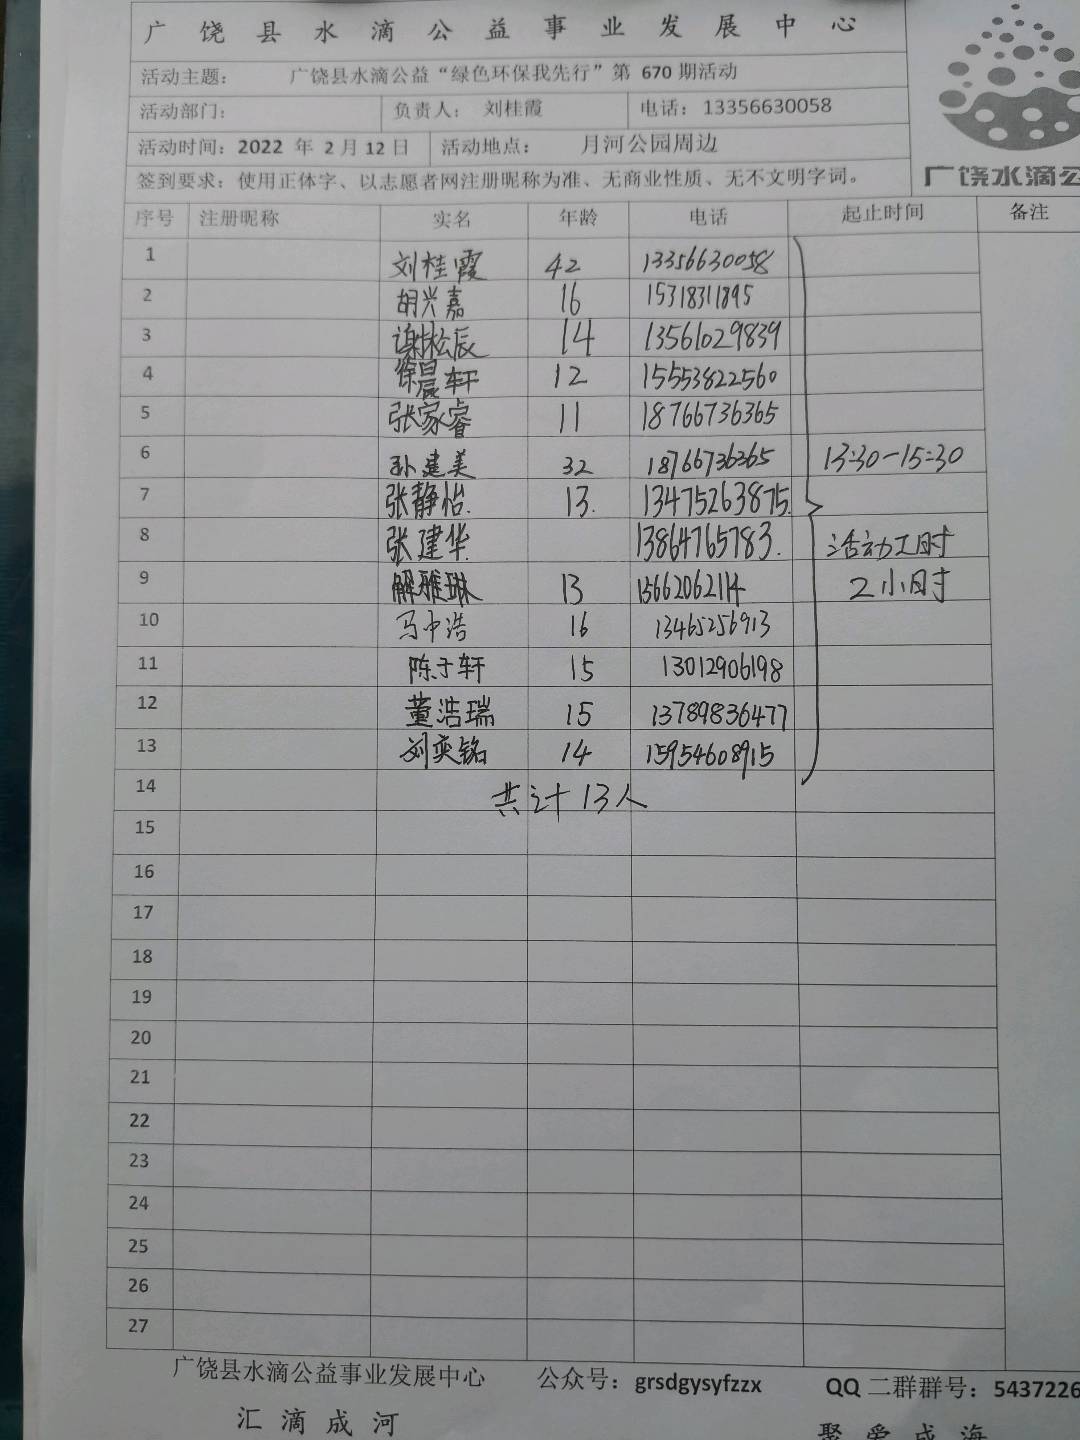 广饶县水滴公益事业发展中心
活动主题： 广饶县水滴公益“绿色环保我先行”第 670 期活动
活动部门： 负责人： 刘桂霞 电话：13356630058
活动时间：2022 年 2 月 12 日 活动地点： 月河公园周边
签到要求：使用正体字、以志愿者网注册昵称为准、无商业性质、无不文明字词。
广饶水滴公
序号 注册昵称 实名 年龄 电话 起止时间 备注
1 刘桂霞 42 13356630058
2 胡兴嘉 16 15318311895
3 谢松辰 14 13561029839
4 徐晨轩 12 15553822560
5 张家睿 11 18766736365
6 孙建美 32 18766736365 13:30-15:30
7 张静怡. 13. 13475263875.
8 张建华 13864765783. 活动工时
9 解雅琳 13 15662062114 2小时
10 马中浩 16 13465256913
11 陈于轩 15 13012906198
12 董浩瑞 15 13789836477
13 刘奕铭 14 15954608915
14 共计13人
15
16
17
18
19
20
21
22
23
24
25
26
27
广饶县水滴公益事业发展中心 公众号：grsdgysyfzzx QQ 二群群号：5437226
汇滴成河 聚爱成海